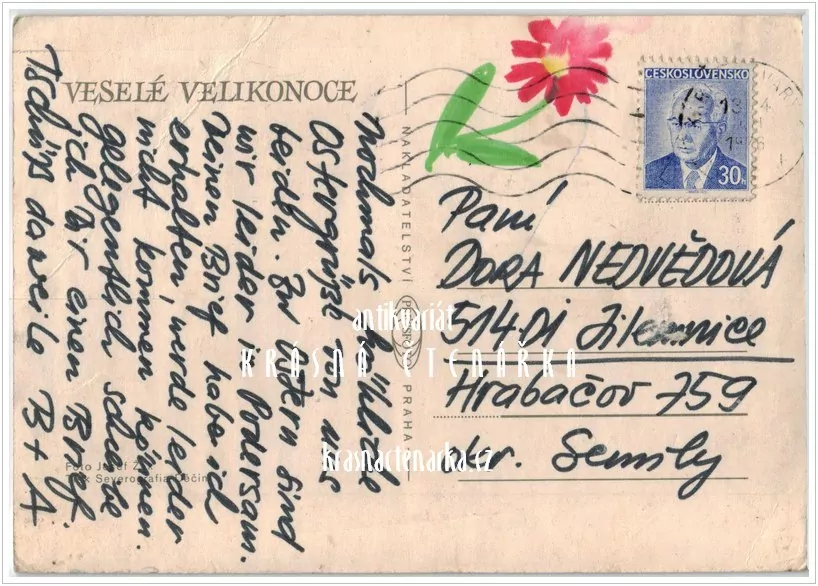 VESELÉ VELIKONOCE
Nochmals herzliche
Ostergrüsse von uns
beiden. Zu Ostern sind
wir leider in Podersam.
Deinen Brief habe ich
erhalten, werde leider
nicht kommen können.
Gelegentlich schreibe
ich Dir einen Brief.
Tschüss derweile B + A
Foto Josef
Tisk Severografia Děčín
NAKLADATELSTVÍ
PRAHA
ČESKOSLOVENSKO
30
Paní
DORA NEDVĚDOVÁ
514 01 Jilemnice
Hrabačov 759
okr. Semily
antikvariát
KRÁSNÁ ČTENÁŘKA
krasnactenarka.cz